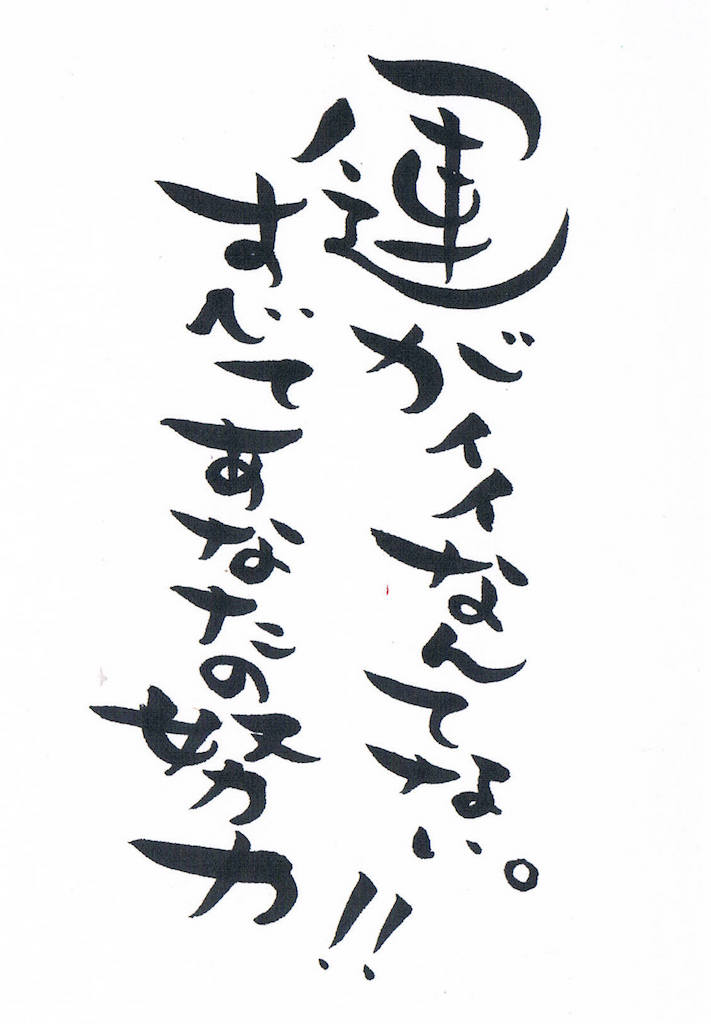 運がイイなんてない。
すべてあなたの努力!!